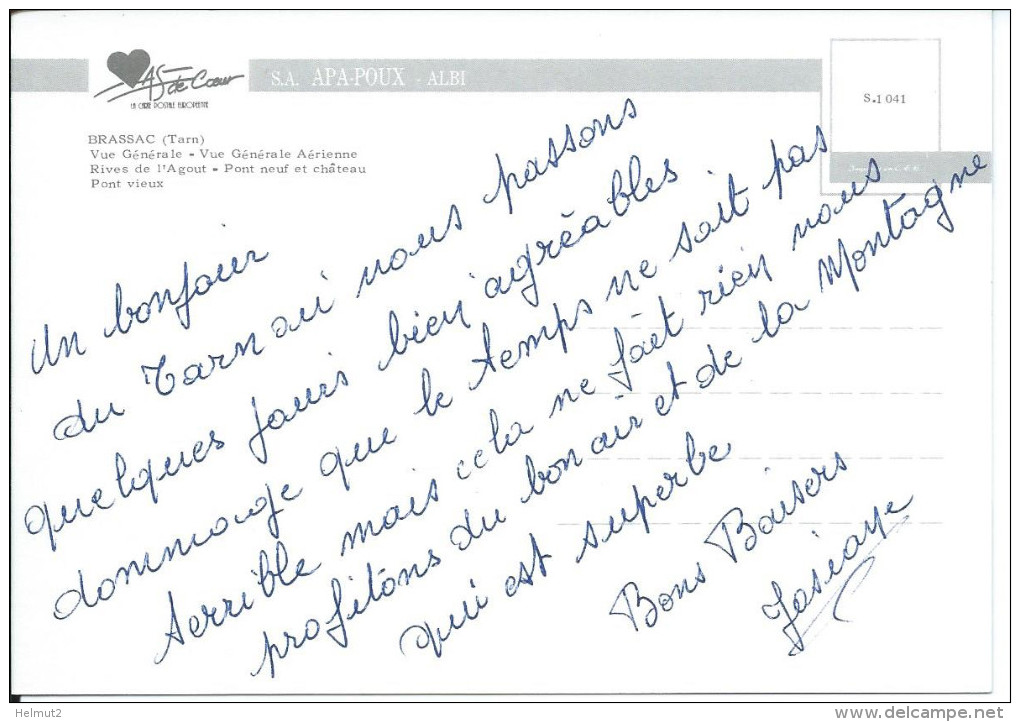 As de Cœur
LA CARTE POSTALE EUROPEENNE
S.A. APA-POUX - ALBI
S.1 041
BRASSAC (Tarn)
Vue Générale - Vue Générale Aérienne
Rives de l'Agout - Pont neuf et château
Pont vieux
Un bonjour
du Tarn ou nous passons
quelques jours bien agréables
dommage que le temps ne soit pas
terrible mais cela ne fait rien nous
profitons du bon air et de la Montagne
qui est superbe
Bons Baisers
Josiane
Helmut2
www.delcampe.net